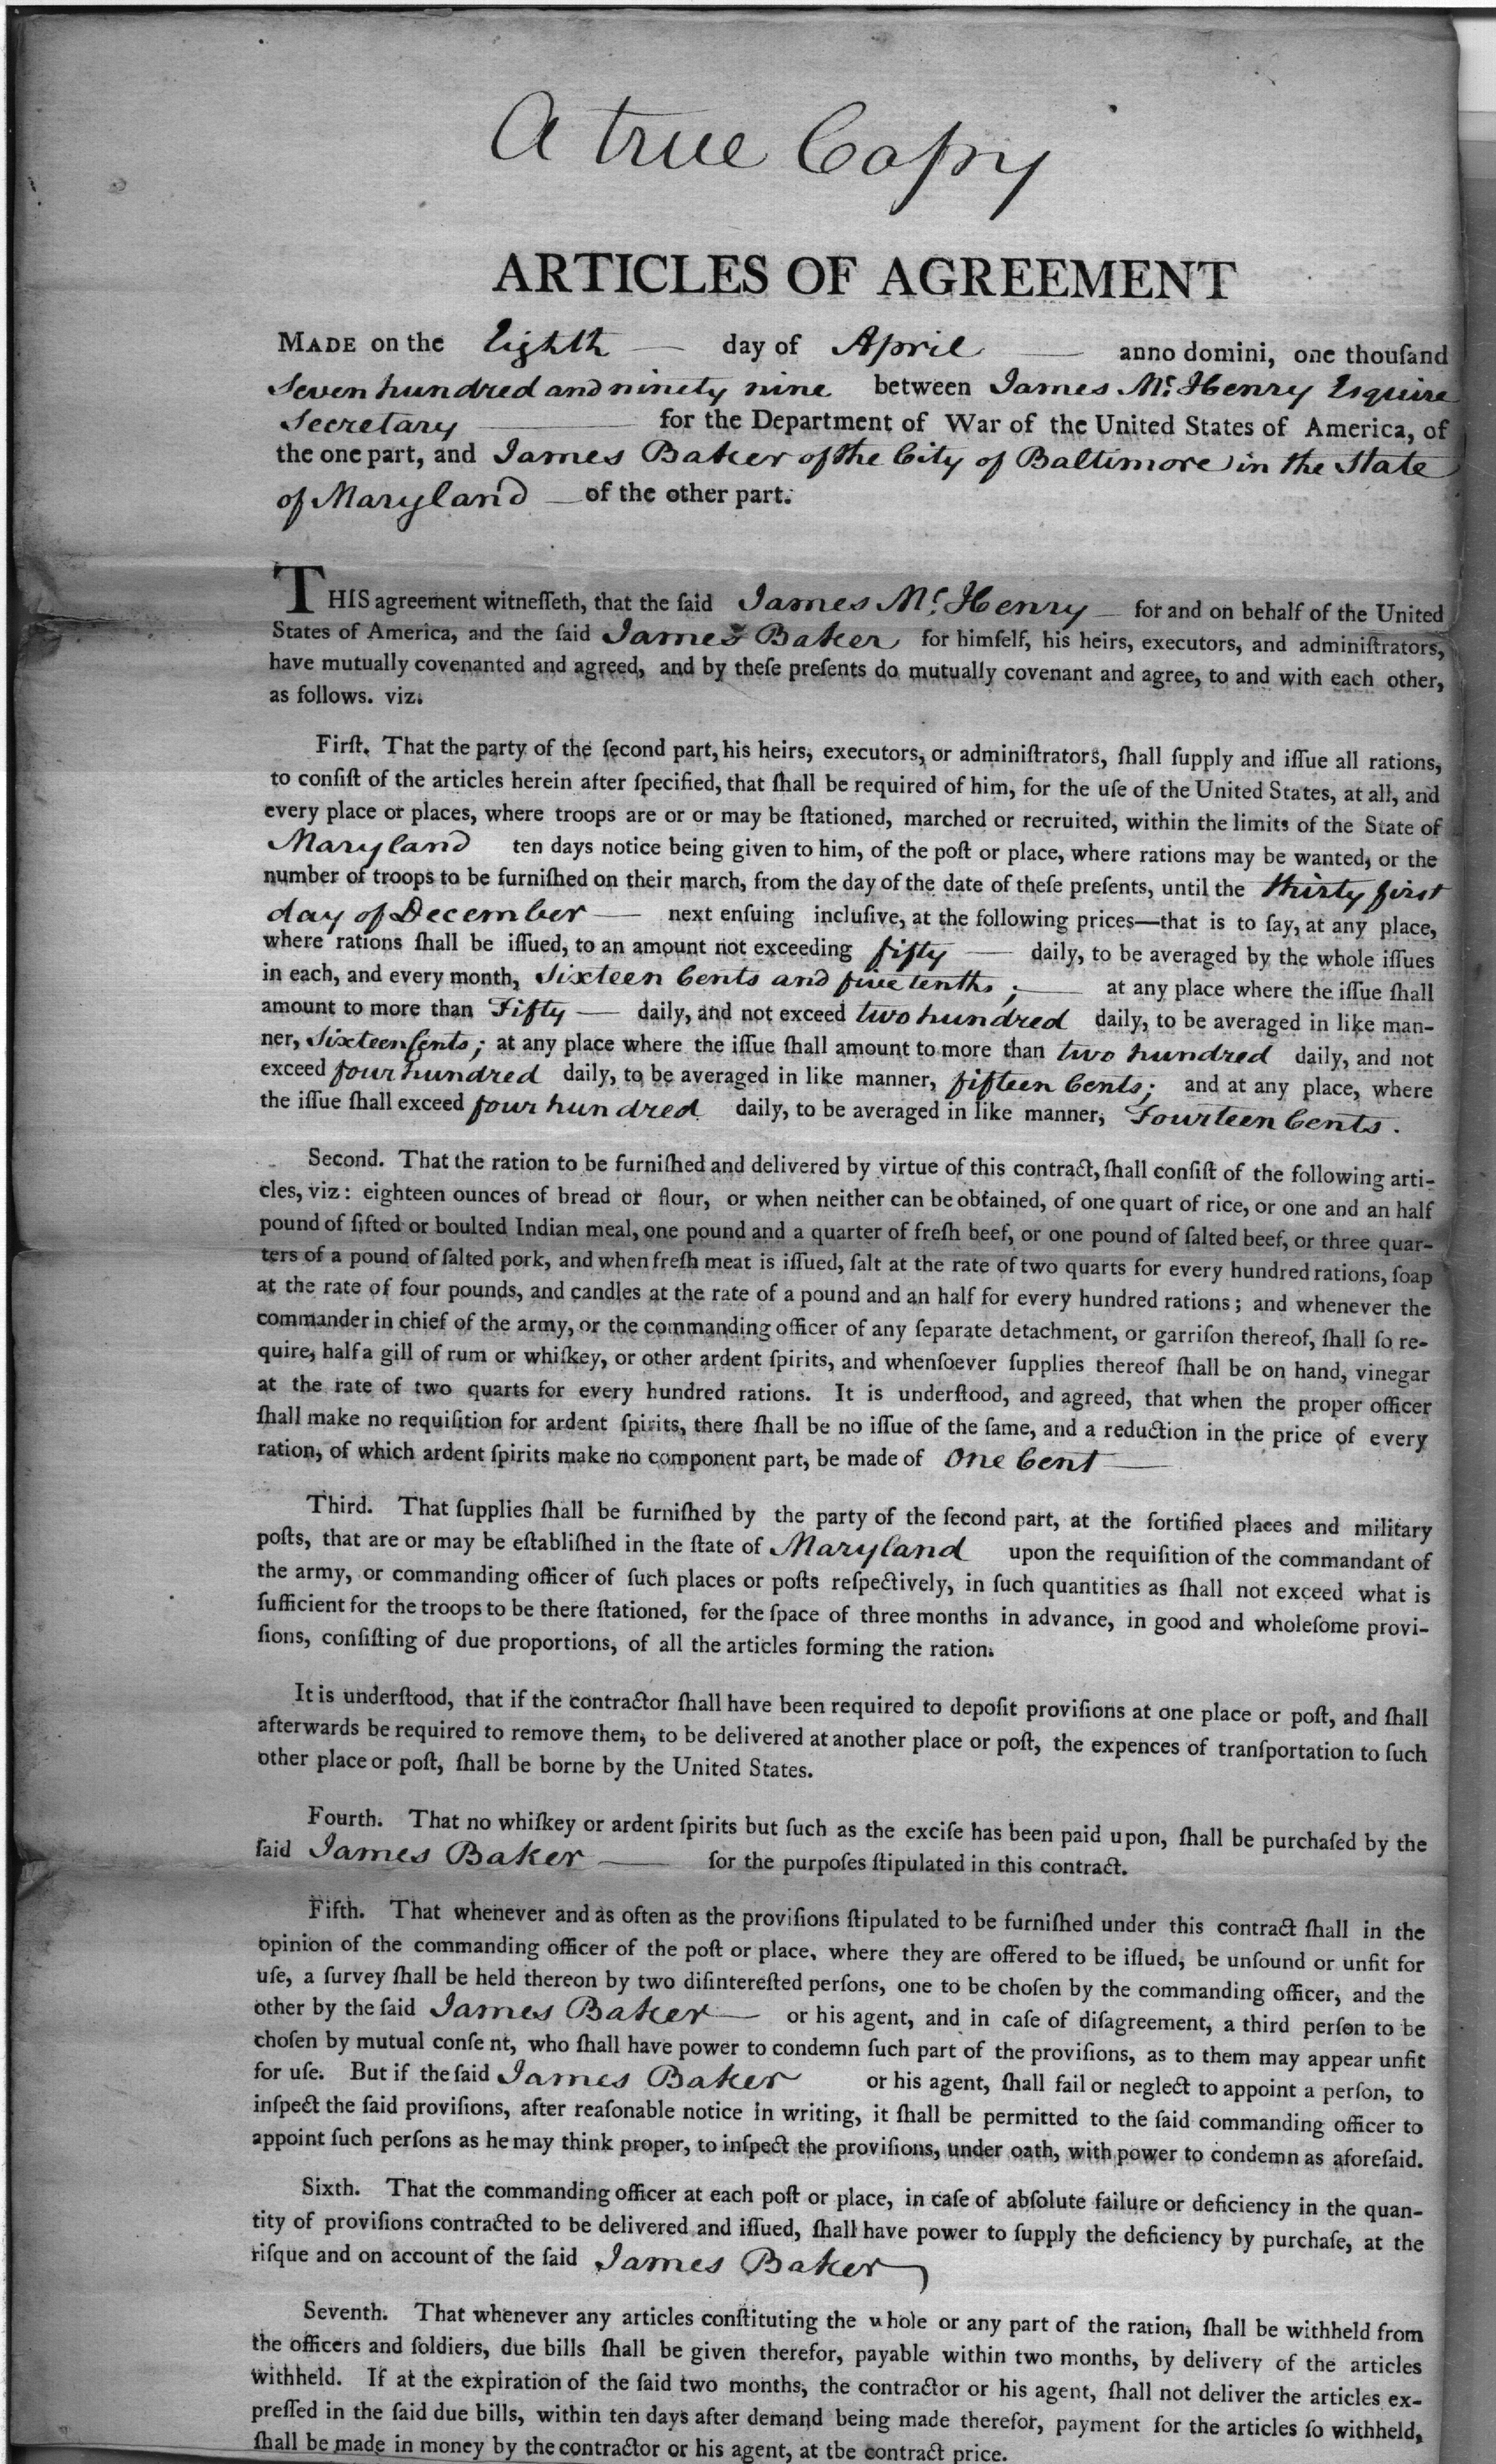 A true Copy
ARTICLES OF AGREEMENT
MADE on the Eighth — day of April — anno domini, one thouſand
Seven hundred and ninety nine between James Mc. Henry Esquire
Secretary — for the Department of War of the United States of America, of
the one part, and James Baker of the City of Baltimore in the State
of Maryland — of the other part.
THIS agreement witneſſeth, that the ſaid James Mc. Henry — for and on behalf of the United
States of America, and the ſaid James Baker for himſelf, his heirs, executors, and adminiſtrators,
have mutually covenanted and agreed, and by theſe preſents do mutually covenant and agree, to and with each other,
as follows. viz.
Firſt. That the party of the ſecond part, his heirs, executors, or adminiſtrators, ſhall ſupply and iſſue all rations,
to conſiſt of the articles herein after ſpecified, that ſhall be required of him, for the uſe of the United States, at all, and
every place or places, where troops are or or may be ſtationed, marched or recruited, within the limits of the State of
Maryland ten days notice being given to him, of the poſt or place, where rations may be wanted, or the
number of troops to be furniſhed on their march, from the day of the date of theſe preſents, until the thirty first
day of December — next enſuing incluſive, at the following prices—that is to ſay, at any place,
where rations ſhall be iſſued, to an amount not exceeding fifty — daily, to be averaged by the whole iſſues
in each, and every month, Sixteen Cents and five tenths; — at any place where the iſſue ſhall
amount to more than Fifty — daily, and not exceed two hundred daily, to be averaged in like man-
ner, Sixteen Cents; at any place where the iſſue ſhall amount to more than two hundred daily, and not
exceed four hundred daily, to be averaged in like manner, fifteen Cents; and at any place, where
the iſſue ſhall exceed four hundred daily, to be averaged in like manner, Fourteen Cents.
Second. That the ration to be furniſhed and delivered by virtue of this contract, ſhall conſiſt of the following arti-
cles, viz: eighteen ounces of bread or flour, or when neither can be obtained, of one quart of rice, or one and an half
pound of ſifted or boulted Indian meal, one pound and a quarter of freſh beef, or one pound of ſalted beef, or three quar-
ters of a pound of ſalted pork, and when freſh meat is iſſued, ſalt at the rate of two quarts for every hundred rations, ſoap
at the rate of four pounds, and candles at the rate of a pound and an half for every hundred rations; and whenever the
commander in chief of the army, or the commanding officer of any ſeparate detachment, or garriſon thereof, ſhall ſo re-
quire, half a gill of rum or whiſkey, or other ardent ſpirits, and whenſoever ſupplies thereof ſhall be on hand, vinegar
at the rate of two quarts for every hundred rations. It is underſtood, and agreed, that when the proper officer
ſhall make no requiſition for ardent ſpirits, there ſhall be no iſſue of the ſame, and a reduction in the price of every
ration, of which ardent ſpirits make no component part, be made of One Cent —
Third. That ſupplies ſhall be furniſhed by the party of the ſecond part, at the fortified places and military
poſts, that are or may be eſtabliſhed in the ſtate of Maryland upon the requiſition of the commandant of
the army, or commanding officer of ſuch places or poſts reſpectively, in ſuch quantities as ſhall not exceed what is
ſufficient for the troops to be there ſtationed, for the ſpace of three months in advance, in good and wholeſome provi-
ſions, conſiſting of due proportions, of all the articles forming the ration.
It is underſtood, that if the contractor ſhall have been required to depoſit proviſions at one place or poſt, and ſhall
afterwards be required to remove them, to be delivered at another place or poſt, the expences of tranſportation to ſuch
other place or poſt, ſhall be borne by the United States.
Fourth. That no whiſkey or ardent ſpirits but ſuch as the exciſe has been paid upon, ſhall be purchaſed by the
ſaid James Baker — for the purpoſes ſtipulated in this contract.
Fifth. That whenever and as often as the proviſions ſtipulated to be furniſhed under this contract ſhall in the
opinion of the commanding officer of the poſt or place, where they are offered to be iſſued, be unſound or unfit for
uſe, a ſurvey ſhall be held thereon by two diſintereſted perſons, one to be choſen by the commanding officer, and the
other by the ſaid James Baker — or his agent, and in caſe of diſagreement, a third perſon to be
choſen by mutual conſe nt, who ſhall have power to condemn ſuch part of the proviſions, as to them may appear unfit
for uſe. But if the ſaid James Baker or his agent, ſhall fail or neglect to appoint a perſon, to
inſpect the ſaid proviſions, after reaſonable notice in writing, it ſhall be permitted to the ſaid commanding officer to
appoint ſuch perſons as he may think proper, to inſpect the proviſions, under oath, with power to condemn as aforeſaid.
Sixth. That the commanding officer at each poſt or place, in caſe of abſolute failure or deficiency in the quan-
tity of proviſions contracted to be delivered and iſſued, ſhall have power to ſupply the deficiency by purchaſe, at the
riſque and on account of the ſaid James Baker
Seventh. That whenever any articles conſtituting the whole or any part of the ration, ſhall be withheld from
the officers and ſoldiers, due bills ſhall be given therefor, payable within two months, by delivery of the articles
withheld. If at the expiration of the ſaid two months, the contractor or his agent, ſhall not deliver the articles ex-
preſſed in the ſaid due bills, within ten days after demand being made therefor, payment for the articles ſo withheld,
ſhall be made in money by the contractor or his agent, at the contract price.